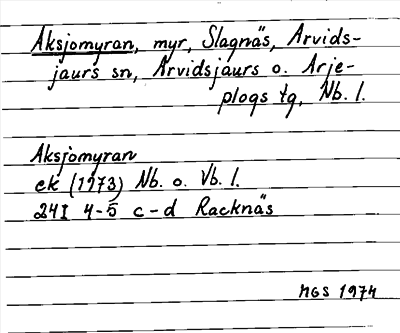 Aksjomyran, myr, Slagnäs, Arvids-
jaurs sn, Arvidsjaurs o. Arje-
plogs tg, Nb. l.
Aksjomyran
ek (1973) Nb. o. Vb. l.
24I 4-5 c-d Racknäs
NGS 1974